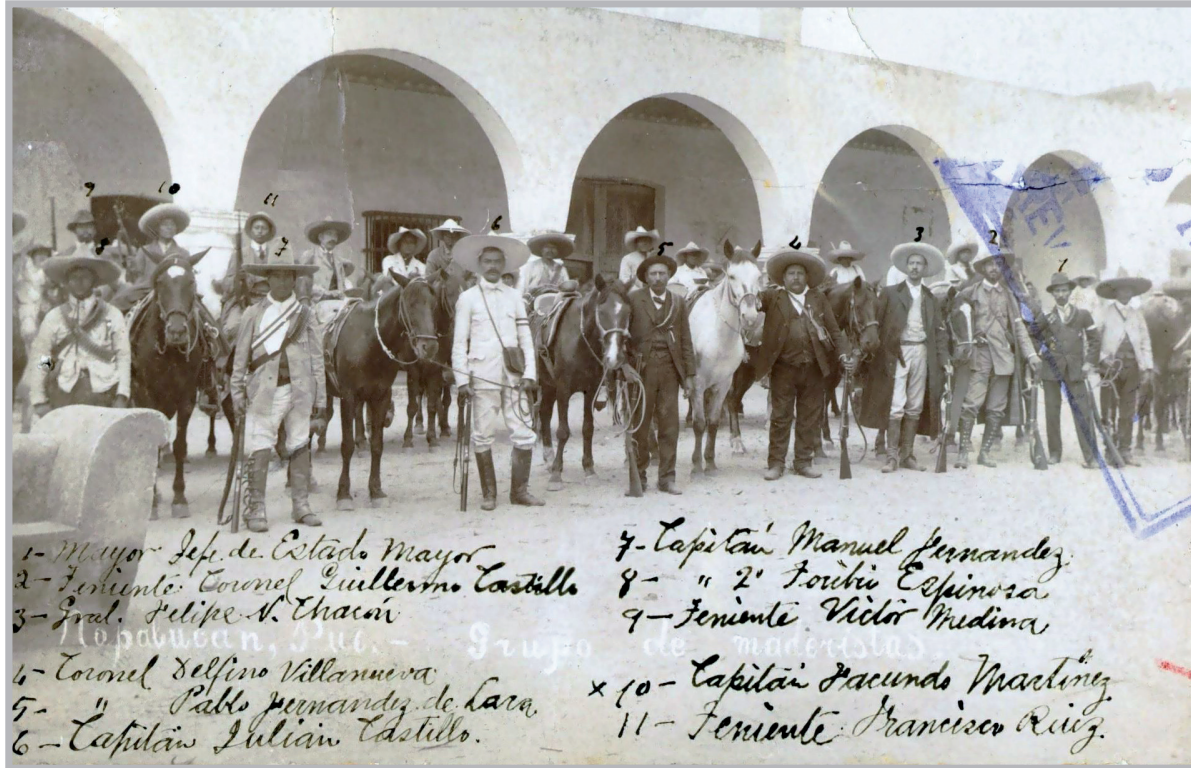 9
10
11
8
7
6
5
4
3
2
1
REV
1- Mayor Jefe de Estado Mayor
2- Teniente Coronel Guillermo Castillo
3- Gral. Felipe N. Chacón
Nopalucan, Pue. - Grupo de maderistas.
4- Coronel Delfino Villanueva
5- " Pablo Fernandez de Lara
6- Capitán Julián Castillo.
7- Capitán Manuel Fernandez
8- " 2º Toribio Espinosa
9- Teniente Victor Medina
x 10- Capitán Facundo Martínez
11- Teniente Francisco Ruiz.